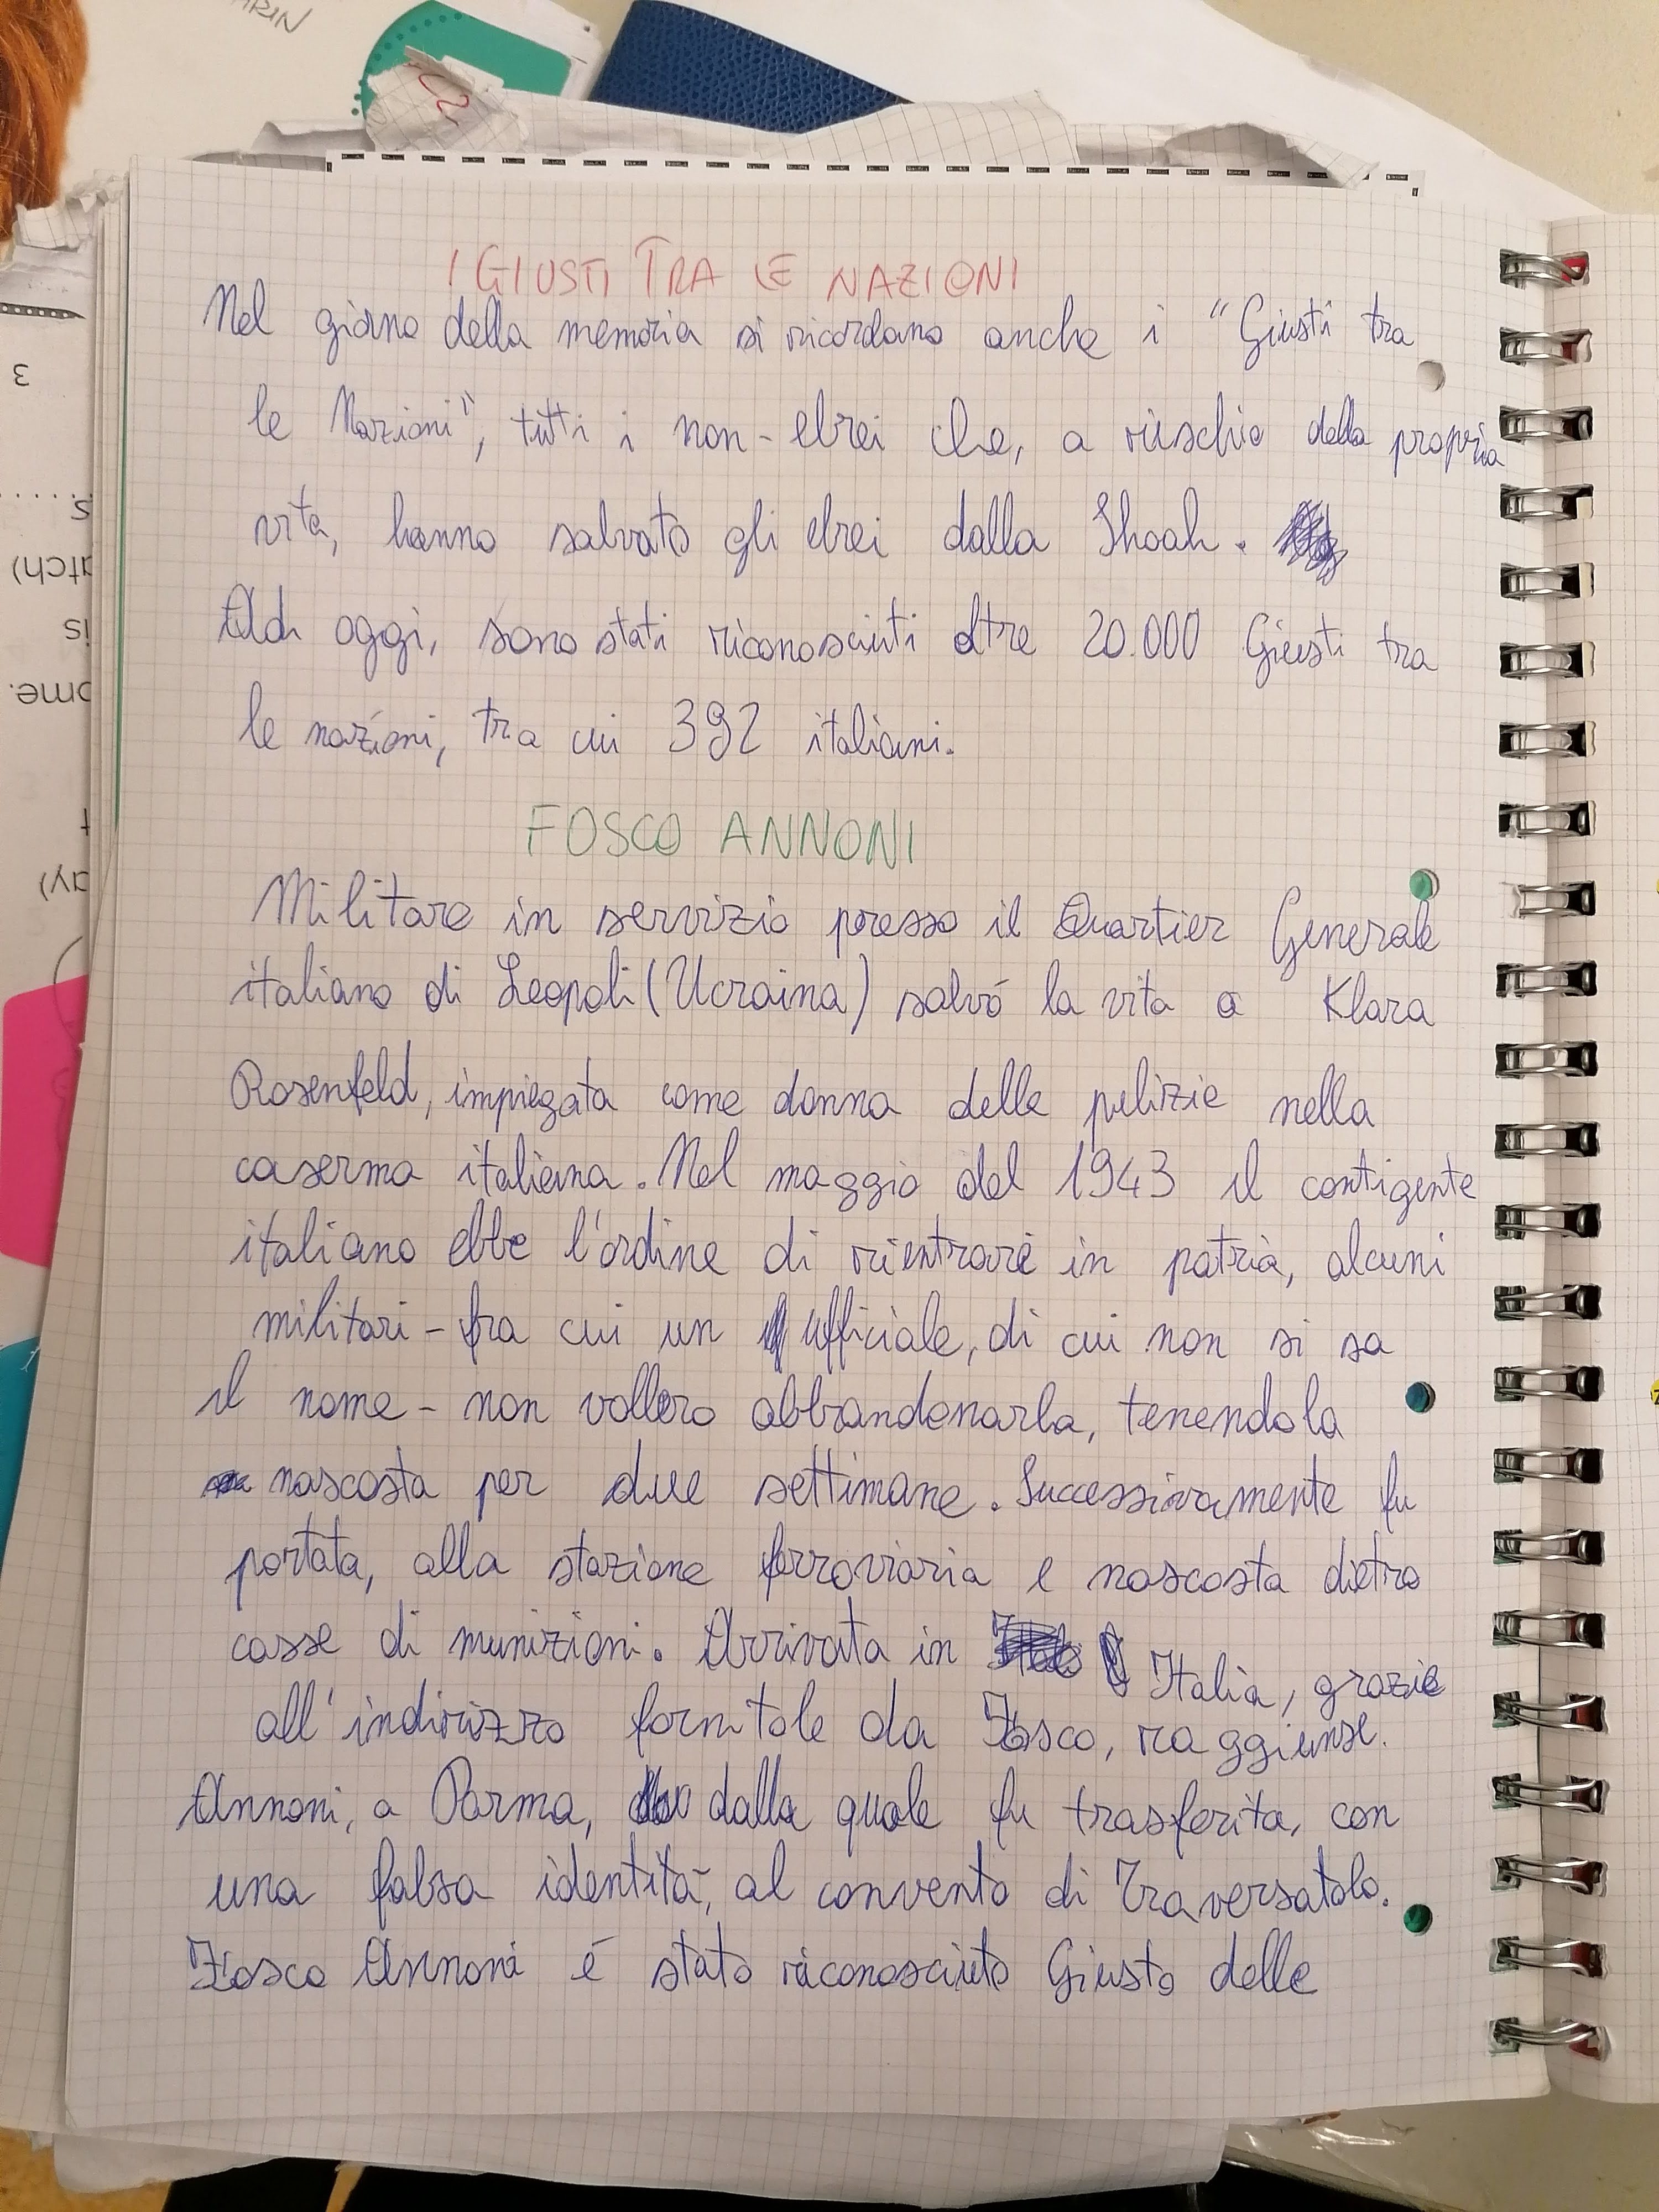 ARIN
I GIUSTI TRA LE NAZIONI
Nel giorno della memoria si ricordano anche i "Giusti tra
le Nazioni", tutti i non-ebrei che, a rischio della propria
vita, hanno salvato gli ebrei dalla Shoah.
Ad oggi, sono stati riconosciuti oltre 20.000 Giusti tra
le nazioni, tra cui 392 italiani.
FOSCO ANNONI
Militare in servizio presso il Quartier Generale
italiano di Leopoli (Ucraina) salvó la vita a Klara
Rosenfeld, impiegata come donna delle pulizie nella
caserma italiana. Nel maggio del 1943 il contigente
italiano ebbe l'ordine di rientrare in patria, alcuni
militari - fra cui un ufficiale, di cui non si sa
il nome - non vollero abbandonarla, tenendola
nascosta per due settimane. Successivamente fu
portata, alla stazione ferroviaria e nascosta dietro
casse di munizioni. Arrivata in Italia, grazie
all'indirizzo fornitole da Fosco, raggiunse.
Annoni, a Parma, dalla quale fu trasferita, con
una falsa identità, al convento di Traversatolo.
Fosco Annoni é stato riconosciuto Giusto delle
3
s
atch)
is
ome.
t
ay)